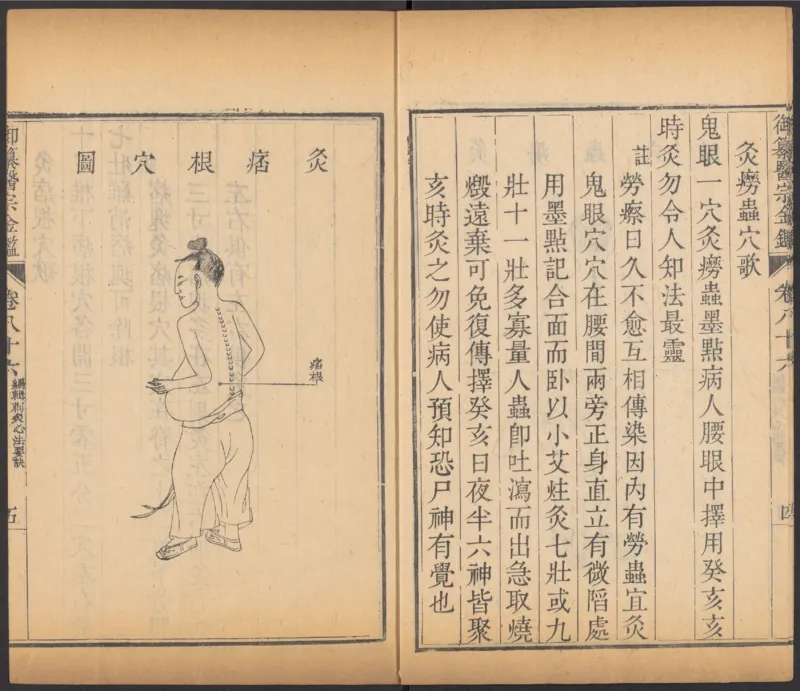 御纂醫宗金鑑
卷八十六
四
灸癆蟲穴歌
鬼眼一穴灸癆蟲墨點病人腰眼中擇用癸亥亥
時灸勿令人知法最靈
註勞瘵日久不愈互相傳染因內有勞蟲宜灸
鬼眼穴穴在腰間兩旁正身直立有微陷處
用墨點記合面而卧以小艾炷灸七壯或九
壯十一壯多寡量人蟲卽吐瀉而出急取燒
燬遠棄可免復傳擇癸亥日夜半六神皆聚
亥時灸之勿使病人預知恐尸神有覺也
灸痞根穴圖
痞根
御纂醫宗金鑑
卷八十六
編輯刺灸心法要訣
五